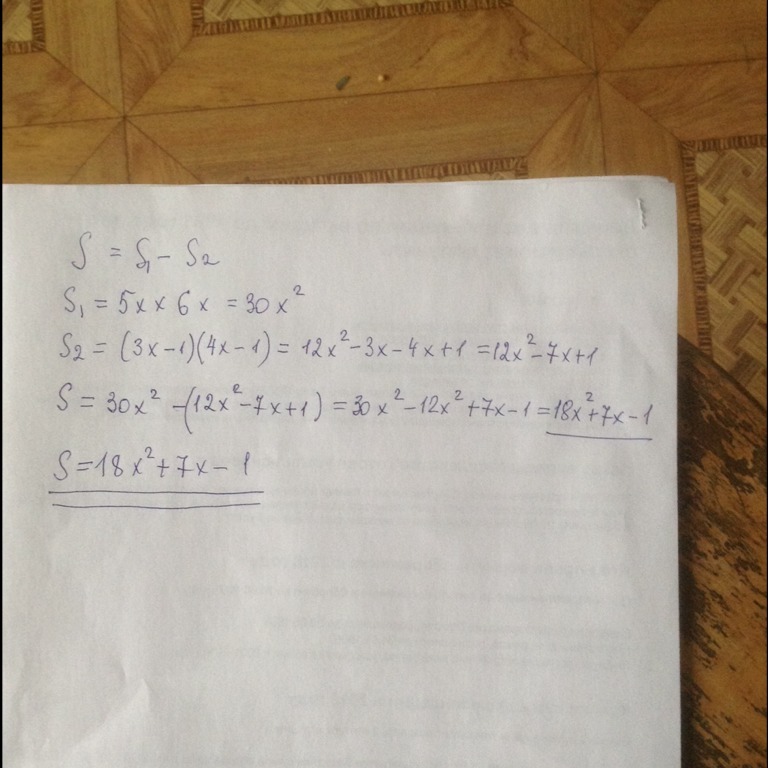 S = S₁ - S₂
S₁ = 5x × 6x = 30x²
S₂ = (3x-1)(4x-1) = 12x²-3x-4x+1 = 12x²-7x+1
S = 30x² -(12x²-7x+1) = 30x²-12x²+7x-1 = 18x²+7x-1
S = 18x²+7x-1